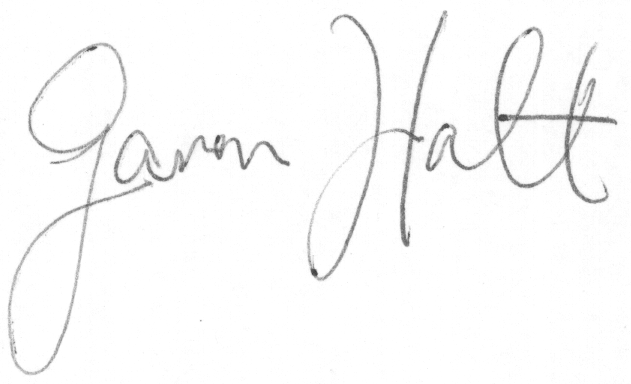 Garron Hatt